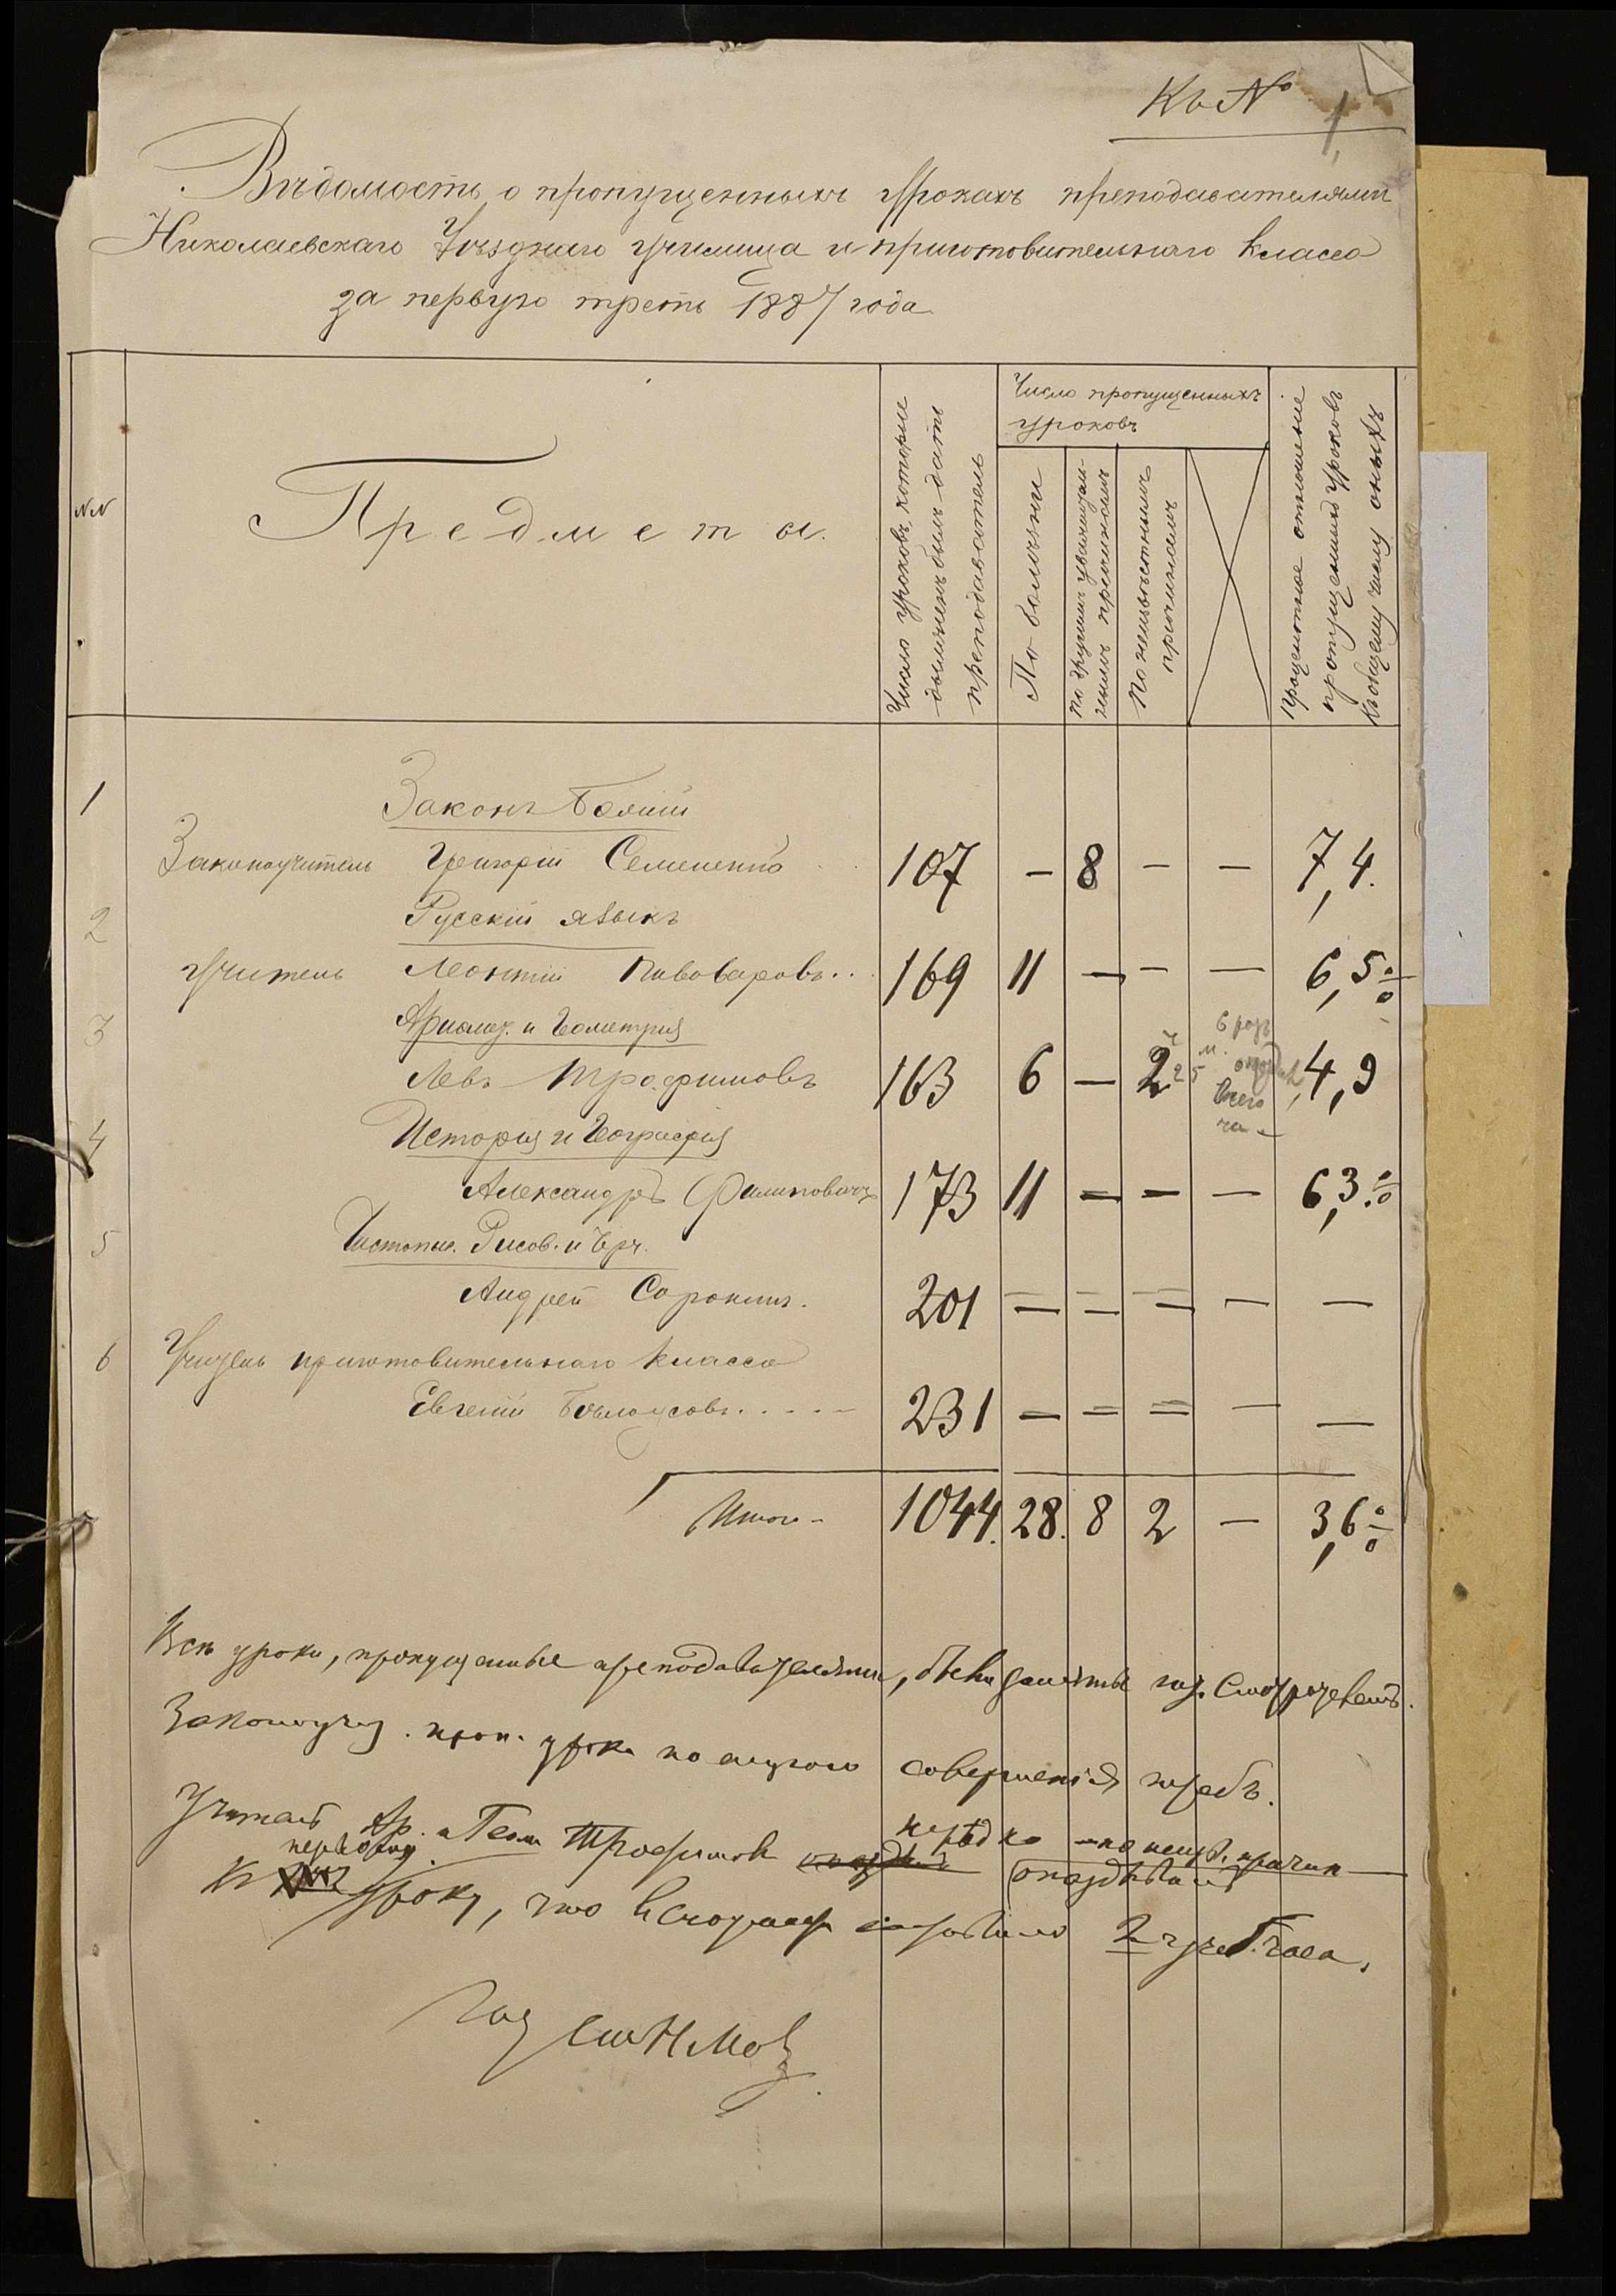 Къ № 1
Вѣдомость о пропущенныхъ урокахъ преподавателями
Николаевскаго Уѣзднаго училища и приготовительнаго класса
за первую треть 1887 года
№№
Предметы.
Число уроковъ, которые
долженъ былъ дать
преподаватель
Число пропущенныхъ
уроковъ
По болѣзни
По другимъ уважитель-
нымъ причинамъ
По неизвѣстнымъ
причинамъ
Процентное отношение
пропущенныхъ уроковъ
къ общему числу оныхъ
1 Законъ Божій
Законоучитель Григорій Семененко 107 — 8 — — 7,4.
2 Русскій языкъ
Учитель Леонтій Пивоваровъ.. 169 11 — — — 6,5%
3 Ариѳмет. и Геометрія
Левъ Трофимовъ 163 6 — 2 4,9
6 разъ
ч. 2 м. 25
всего
4 Исторія и Географія
Александръ Филиповичъ 173 11 — — — 6,3%
5 Чистопис. Рисов. и Черч.
Андрей Сорокинъ. 201 — — — — —
6 Учитель приготовительнаго класса
Евгеній Бѣлоусовъ..... 231 — — — — —
Итого — 1044. 28. 8 2 — 3,6%
Всѣ уроки, пропущенные преподавателями, были заняты
Законоучит. проп. уроки по случаю совершенія требъ.
Учитель Ар. и Геом Трофимовъ нерѣдко по неув. причин
опаздывалъ
къ первому
уроку, что въ составило 2 учеб. часа.